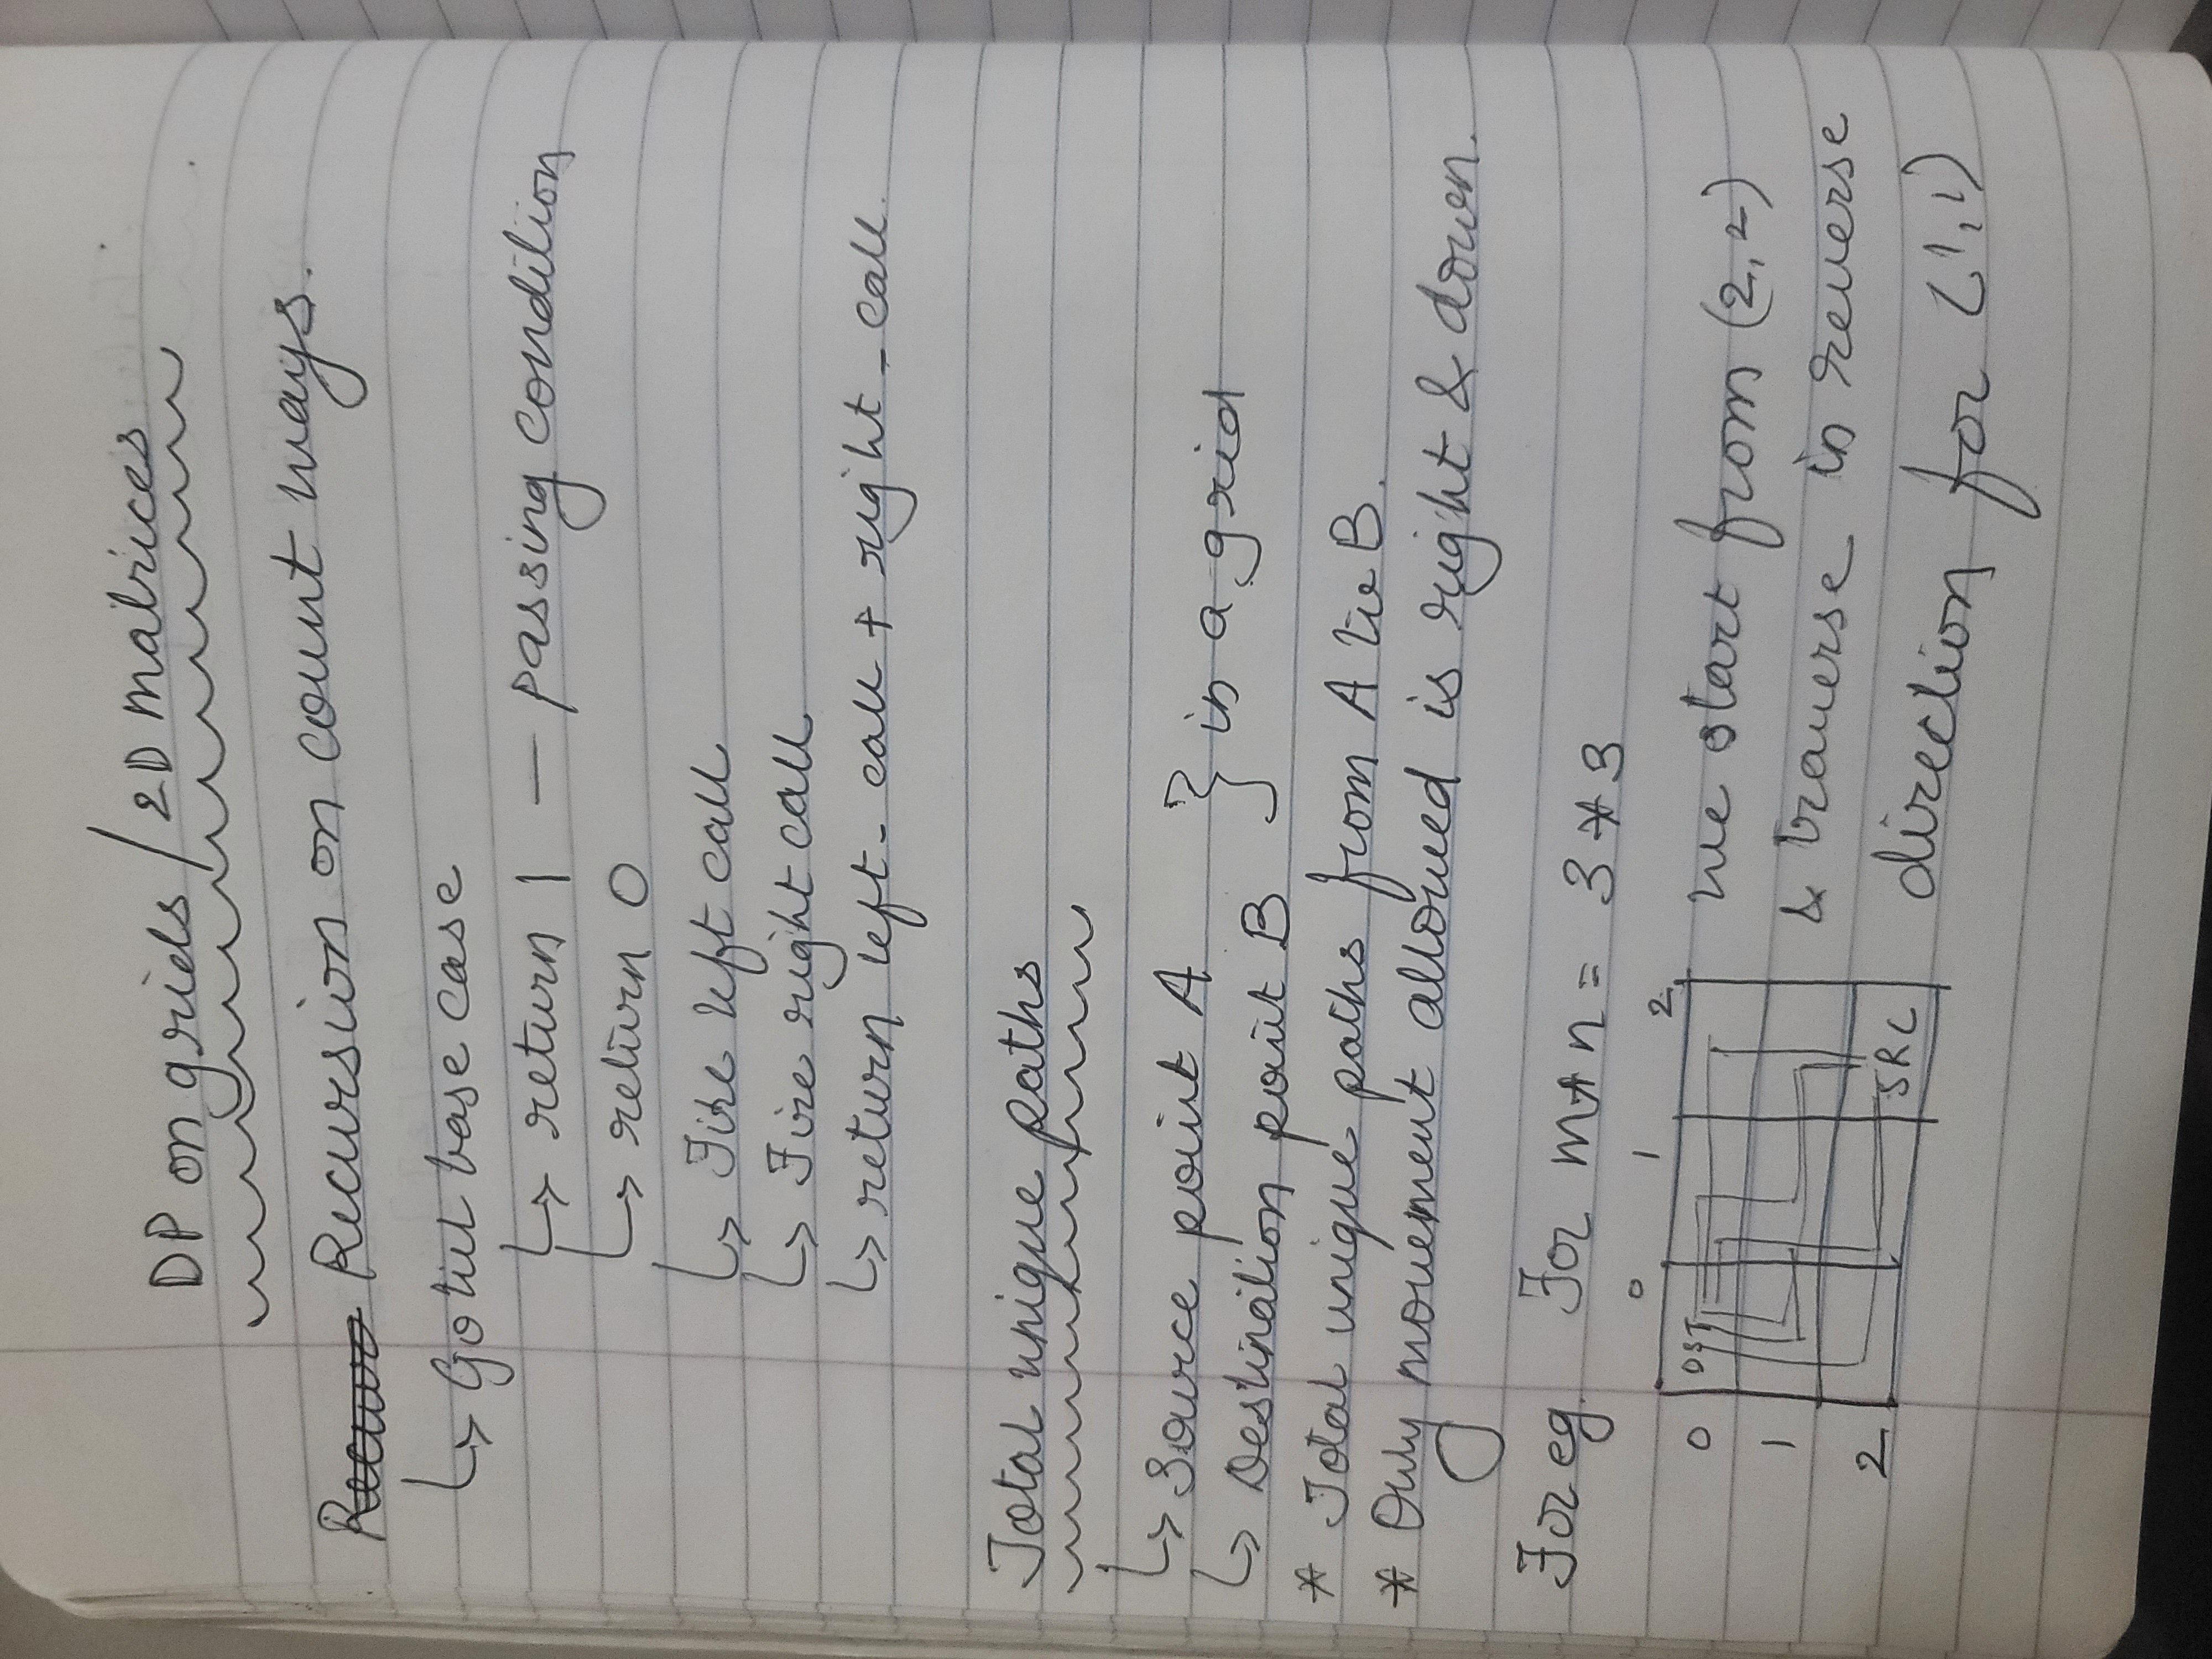 DP on grids / 2D matrices
Recursion on count ways.
↳ Go till base case
↳ return 1 — passing condition
↳ return 0
↳ Fire left call
↳ Fire right call
↳ return left_call + right_call.
Total unique paths
↳ Source point A
} in a grid
↳ Destination point B
* Total unique paths from A to B.
* Only movement allowed is right & down.
For eg. For m*n = 3*3
0 1 2
0 DST we start from (2,2)
1 & traverse in reverse
2 SRC direction for (1,1)